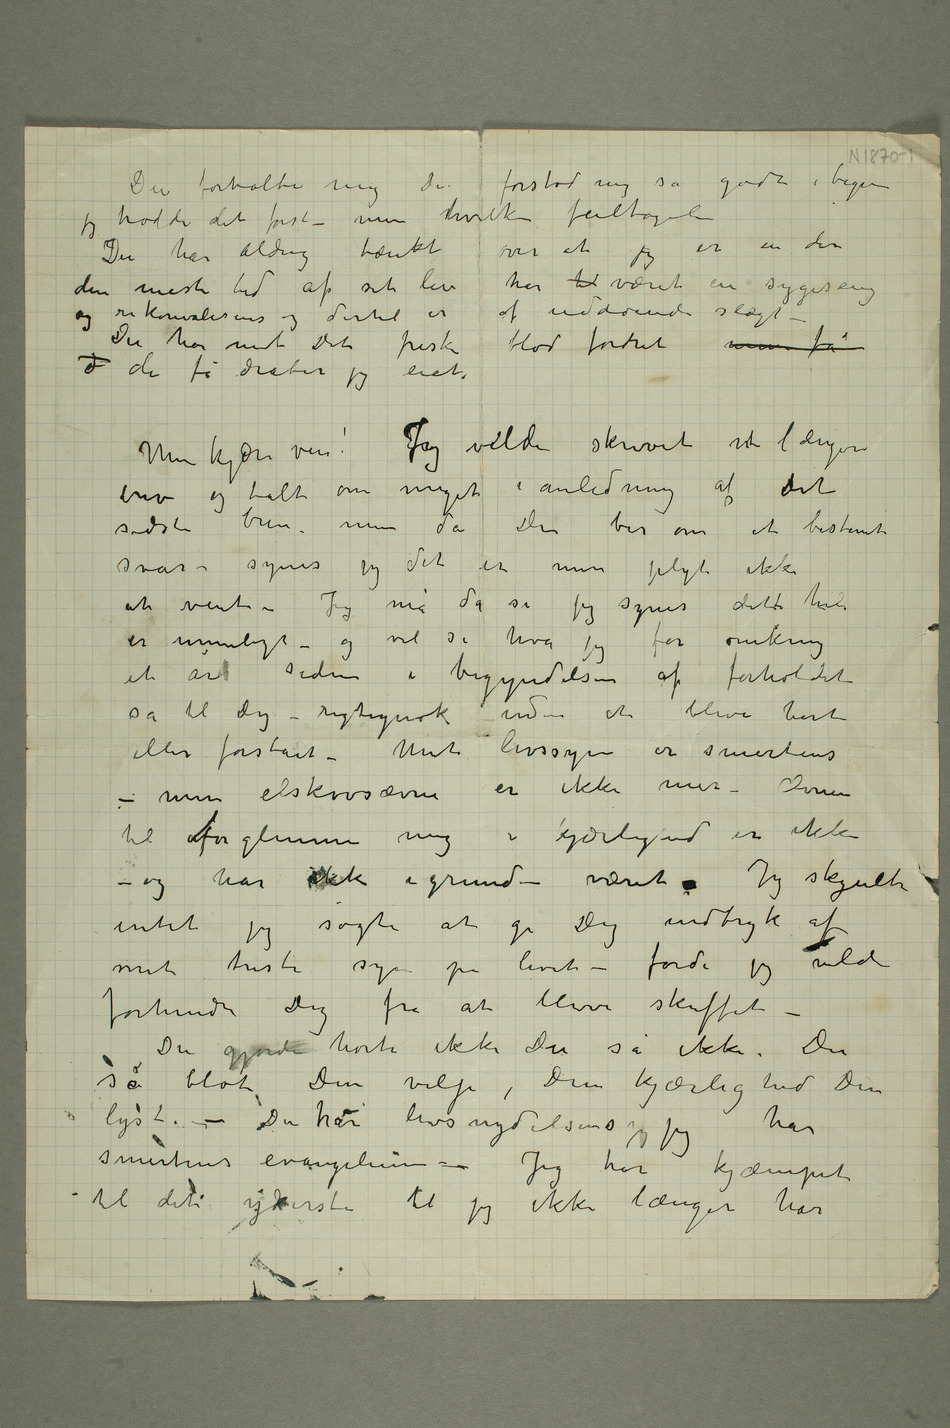 N1870-1
Du fortalte mig du forstod mig så godt i begyn
jeg trodde det først – men hvilken feiltagelse
Du har aldrig tænkt over at jeg er en der
den meste tid af sit liv har til været en sygeseng
og rekonvalesens og dertil er af uddøende slægt –
Du har med Dit friske blod fordret mine få
d de få dråber jeg eiet.
Min kjære ven! Jeg vilde skrevet et længere
brev og talt om meget i anledning af dit
sidste brev. men da Du ber om et bestemt
svar – synes jeg det er min pligt ikke
at vente – Jeg må da si jeg synes dette hele
er umuligt – og vil si hva jeg for omkring
et år siden i begyndelsen af forholdet
sa til Dig – rigtignok uden at blive hørt
eller forstået – Mit livssyn er smertens
– min elskovsævne er ikke mer – Evnen
til at forglemme mig i kjærlighed er ikke
– og har ikke i grunden været. Jeg skjulte
intet jeg søgte at gi Dig indtryk af
mit triste syn på livet – fordi jeg vilde
forhindre Dig fra at blive skuffet –
Du gjorde hørte ikke Du så ikke. Du
så blot Din vilje, Din kjærlighed Din
lyst. – Du har livsnydelsens jeg har
smertens evangelium – Jeg har kjæmpet
til det yderste til jeg ikke længer har